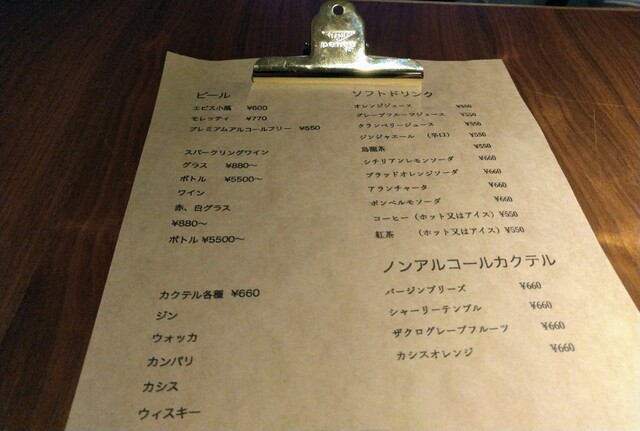 ビール
エビス小瓶 ¥600
モレッティ ¥770
プレミアムアルコールフリー ¥550
スパークリングワイン
グラス ¥880～
ボトル ¥5500～
ワイン
赤、白グラス
¥880～
ボトル ¥5500～
カクテル各種 ¥660
ジン
ウォッカ
カンパリ
カシス
ウィスキー
ソフトドリンク
オレンジジュース ¥550
グレープフルーツジュース ¥550
クランベリージュース ¥550
ジンジャエール (辛口) ¥550
烏龍茶 ¥550
シチリアンレモンソーダ ¥660
ブラッドオレンジソーダ ¥660
アランチャータ ¥660
ポンペルモソーダ ¥660
コーヒー (ホット又はアイス) ¥550
紅茶 (ホット又はアイス) ¥550
ノンアルコールカクテル
バージンブリーズ ¥660
シャーリーテンプル ¥660
ザクログレープフルーツ ¥660
カシスオレンジ ¥660